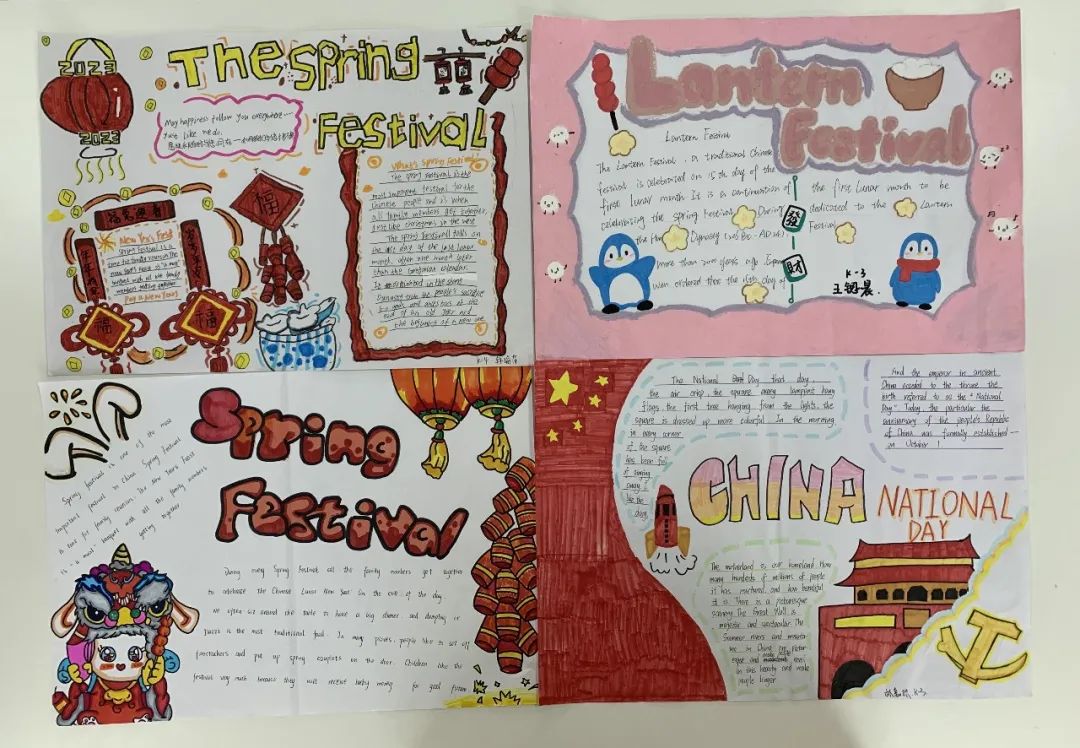 2023
2023
The Spring
Festival
May happiness follow you everywhere
just like me do.
福
What's Spring Festival
The Spring Festival is the
most important festival for the
Chinese people and is when
all family members get together,
just like Christmas in the west
The Spring Festival falls on
the 1st day of the 1st lunar
month, often one month later
than the Gregorian calendar.
It originated in the Shang
Dynasty from the people's sacrifice
to gods and ancestors at the
end of an old year and
the beginning of a new one
New Year's Feast
Spring Festival is a
福
福
Lantern
Festival
Lantern Festival
The Lantern Festival, a traditional Chinese
festival is celebrated on 15th day of the
first lunar month It is a continuation of
celebrating the spring Festival During
the Han Dynasty
more than 2000 years ago
when ordered that the 15th day of
the first Lunar month to be
dedicated to the Lantern
Festival
發
財
K-3
Spring
Festival
Spring Festival is one of the most
important festival in China Spring Festival
is time for family reunion like New Years Feast
is "a must" banquet with all the family members
getting together
During every Spring Festival all the family members get together
to celebrate the Chinese Lunar New Year In the eve of the day
We often sit around the table to have a big dinner and dumpling or
is the most traditional food. In many places, people like to set off
firecrackers and put up spring couplets on the door. Children like the
festival very much because they will receive lucky money for good
The National Day that day,
the air crisp, the square many lampions hang
flags, the first tree hanging from the lights, the
square is dressed up more colorful. In the morning
in every corner
of the square
has been full
of singing
And the emperor in ancient
China ascended to the throne the
birth referred to as the "National
Day" Today, the particular the
anniversary of the people's Republic
of China was formally established
in October 1
CHINA
NATIONAL
DAY
The motherland is our homeland How
many hundreds of millions of people
it has nurtured and how beautiful
it is There is a picturesque
scenery The Great Wall is
majestic and spectacular The
Summer rivers and mountains
in this beauty and make
people linger
K-3